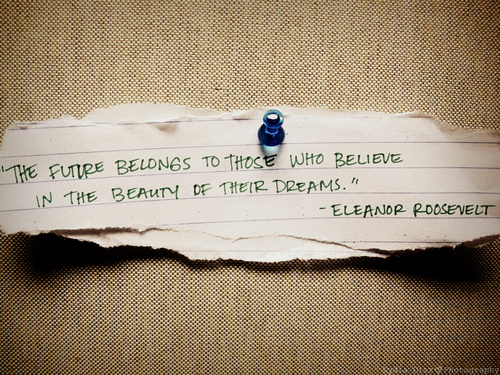 "THE FUTURE BELONGS TO THOSE WHO BELIEVE
IN THE BEAUTY OF THEIR DREAMS."
- ELEANOR ROOSEVELT
Photography